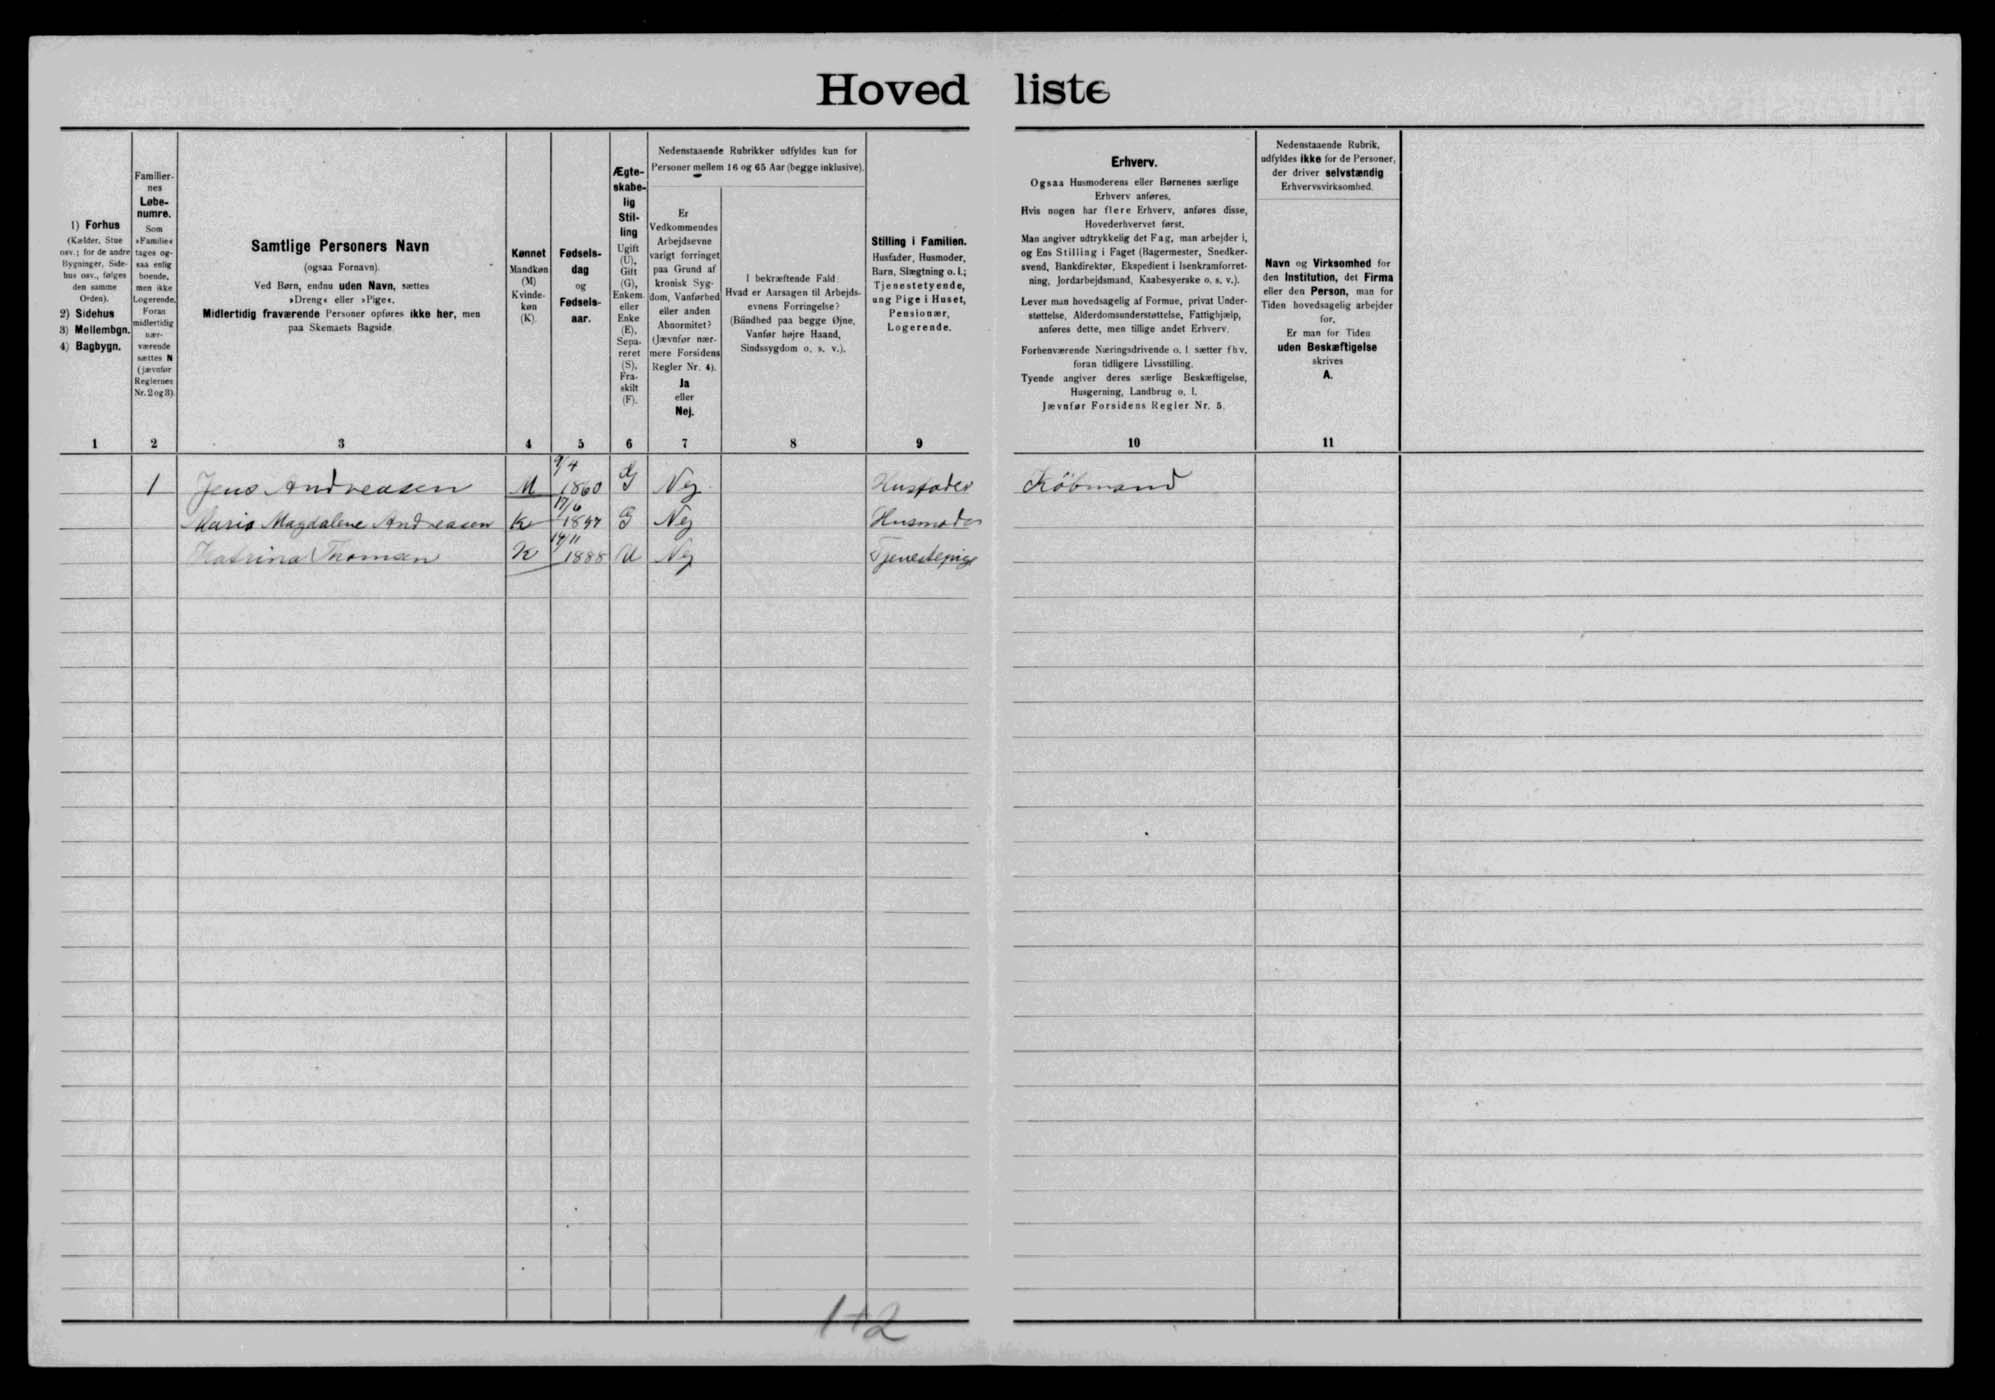 Hovedliste
1) Forhus
(Kælder, Stue
osv.; for de andre
Bygninger, Side-
hus osv., følges
den samme
Orden).
2) Sidehus
3) Mellembgn.
4) Bagbygn.
Familier-
nes
Løbe-
numre.
Som
»Familie«
tages og-
saa enlig
boende,
men ikke
Logerende.
Foran
midlertidig
nær-
værende
sættes N
(jævnfør
Reglernes
Nr. 2 og 3).
Samtlige Personers Navn
(ogsaa Fornavn).
Ved Børn, endnu uden Navn, sættes
»Dreng« eller »Pige«.
Midlertidig fraværende Personer opføres ikke her, men
paa Skemaets Bagside.
Kønnet
Mandkøn
(M)
Kvinde-
køn
(K).
Fødsels-
dag
og
Fødsels-
aar.
Ægte-
skabe-
lig
Stil-
ling
Ugift
(U),
Gift
(G),
Enkem.
eller
Enke
(E),
Sepa-
reret
(S),
Fra-
skilt
(F).
Nedenstaaende Rubrikker udfyldes kun for
Personer mellem 16 og 65 Aar (begge inklusive).
Er
Vedkommendes
Arbejdsevne
varigt forringet
paa Grund af
kronisk Syg-
dom, Vanførhed
eller anden
Abnormitet?
(Jævnfør nær-
mere Forsidens
Regler Nr. 4).
Ja
eller
Nej.
I bekræftende Fald:
Hvad er Aarsagen til Arbejds-
evnens Forringelse?
(Blindhed paa begge Øjne,
Vanfør højre Haand,
Sindssygdom o. s. v.).
Stilling i Familien.
Husfader, Husmoder,
Barn, Slægtning o. l.;
Tjenestetyende,
ung Pige i Huset,
Pensionær,
Logerende.
Erhverv.
Ogsaa Husmoderens eller Børnenes særlige
Erhverv anføres.
Hvis nogen har flere Erhverv, anføres disse,
Hovederhvervet først.
Man angiver udtrykkelig det Fag, man arbejder i,
og Ens Stilling i Faget (Bagermester, Snedker-
svend, Bankdirektør, Ekspedient i Isenkramforret-
ning, Jordarbejdsmand, Kaabesyerske o. s. v.).
Lever man hovedsagelig af Formue, privat Under-
støttelse, Alderdomsunderstøttelse, Fattighjælp,
anføres dette, men tillige andet Erhverv.
Forhenværende Næringsdrivende o. l. sætter fhv.
foran tidligere Livsstilling.
Tyende angiver deres særlige Beskæftigelse,
Husgerning, Landbrug o. l.
Jævnfør Forsidens Regler Nr. 5.
Nedenstaaende Rubrik,
udfyldes ikke for de Personer,
der driver selvstændig
Erhvervsvirksomhed.
Navn og Virksomhed for
den Institution, det Firma
eller den Person, man for
Tiden hovedsagelig arbejder
for.
Er man for Tiden
uden Beskæftigelse
skrives
A.
1 2 3 4 5 6 7 8 9 10 11
1 Jens Andreasen M 9/4 1860 G Nej Husfader Købmand
Marie Magdalene Andreasen K 17/6 G Nej Husmoder
Katrina Thomsen K 14/11 1888 U Nej Tjenestepige
1+2